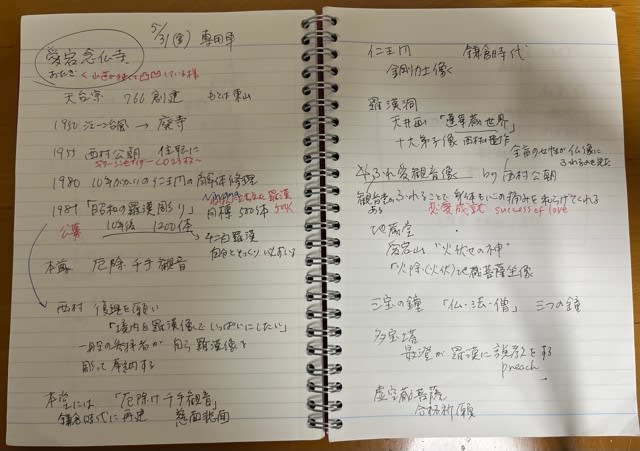 5/31(金)
愛宕念仏寺
おたぎ
天台宗 766創建 もとは東山
1950 ジェーン台風 → 廃寺
1955 西村公朝 住職に
1980 10年がかりの仁王門の解体修理
1981 「昭和の羅漢彫り」 目標 500体
公募 10年後 1200体
本尊 厄除千手観音
西村 復興を願い
「境内を羅漢像でいっぱいにしたい」
一般の参拝者が 自ら 羅漢像を
彫って奉納する
本堂には 「厄除け千手観音」
鎌倉時代に再建
仁王門 鎌倉時代
金剛力士像
羅漢洞
天井画 「蓮華蔵世界」
十大弟子像 西村
ふれ愛観音像 by 西村公朝
観音さまにふれることで 身体も心の痛みを和らげてくれる
恋愛成就 success of love
地蔵堂
愛宕山 "火伏せの神"
「火除(火伏)地蔵菩薩坐像
三宝の鐘 「仏・法・僧」 三つの鐘
多宝塔
羅漢に説教をする
preach
虚空蔵菩薩
合格祈願